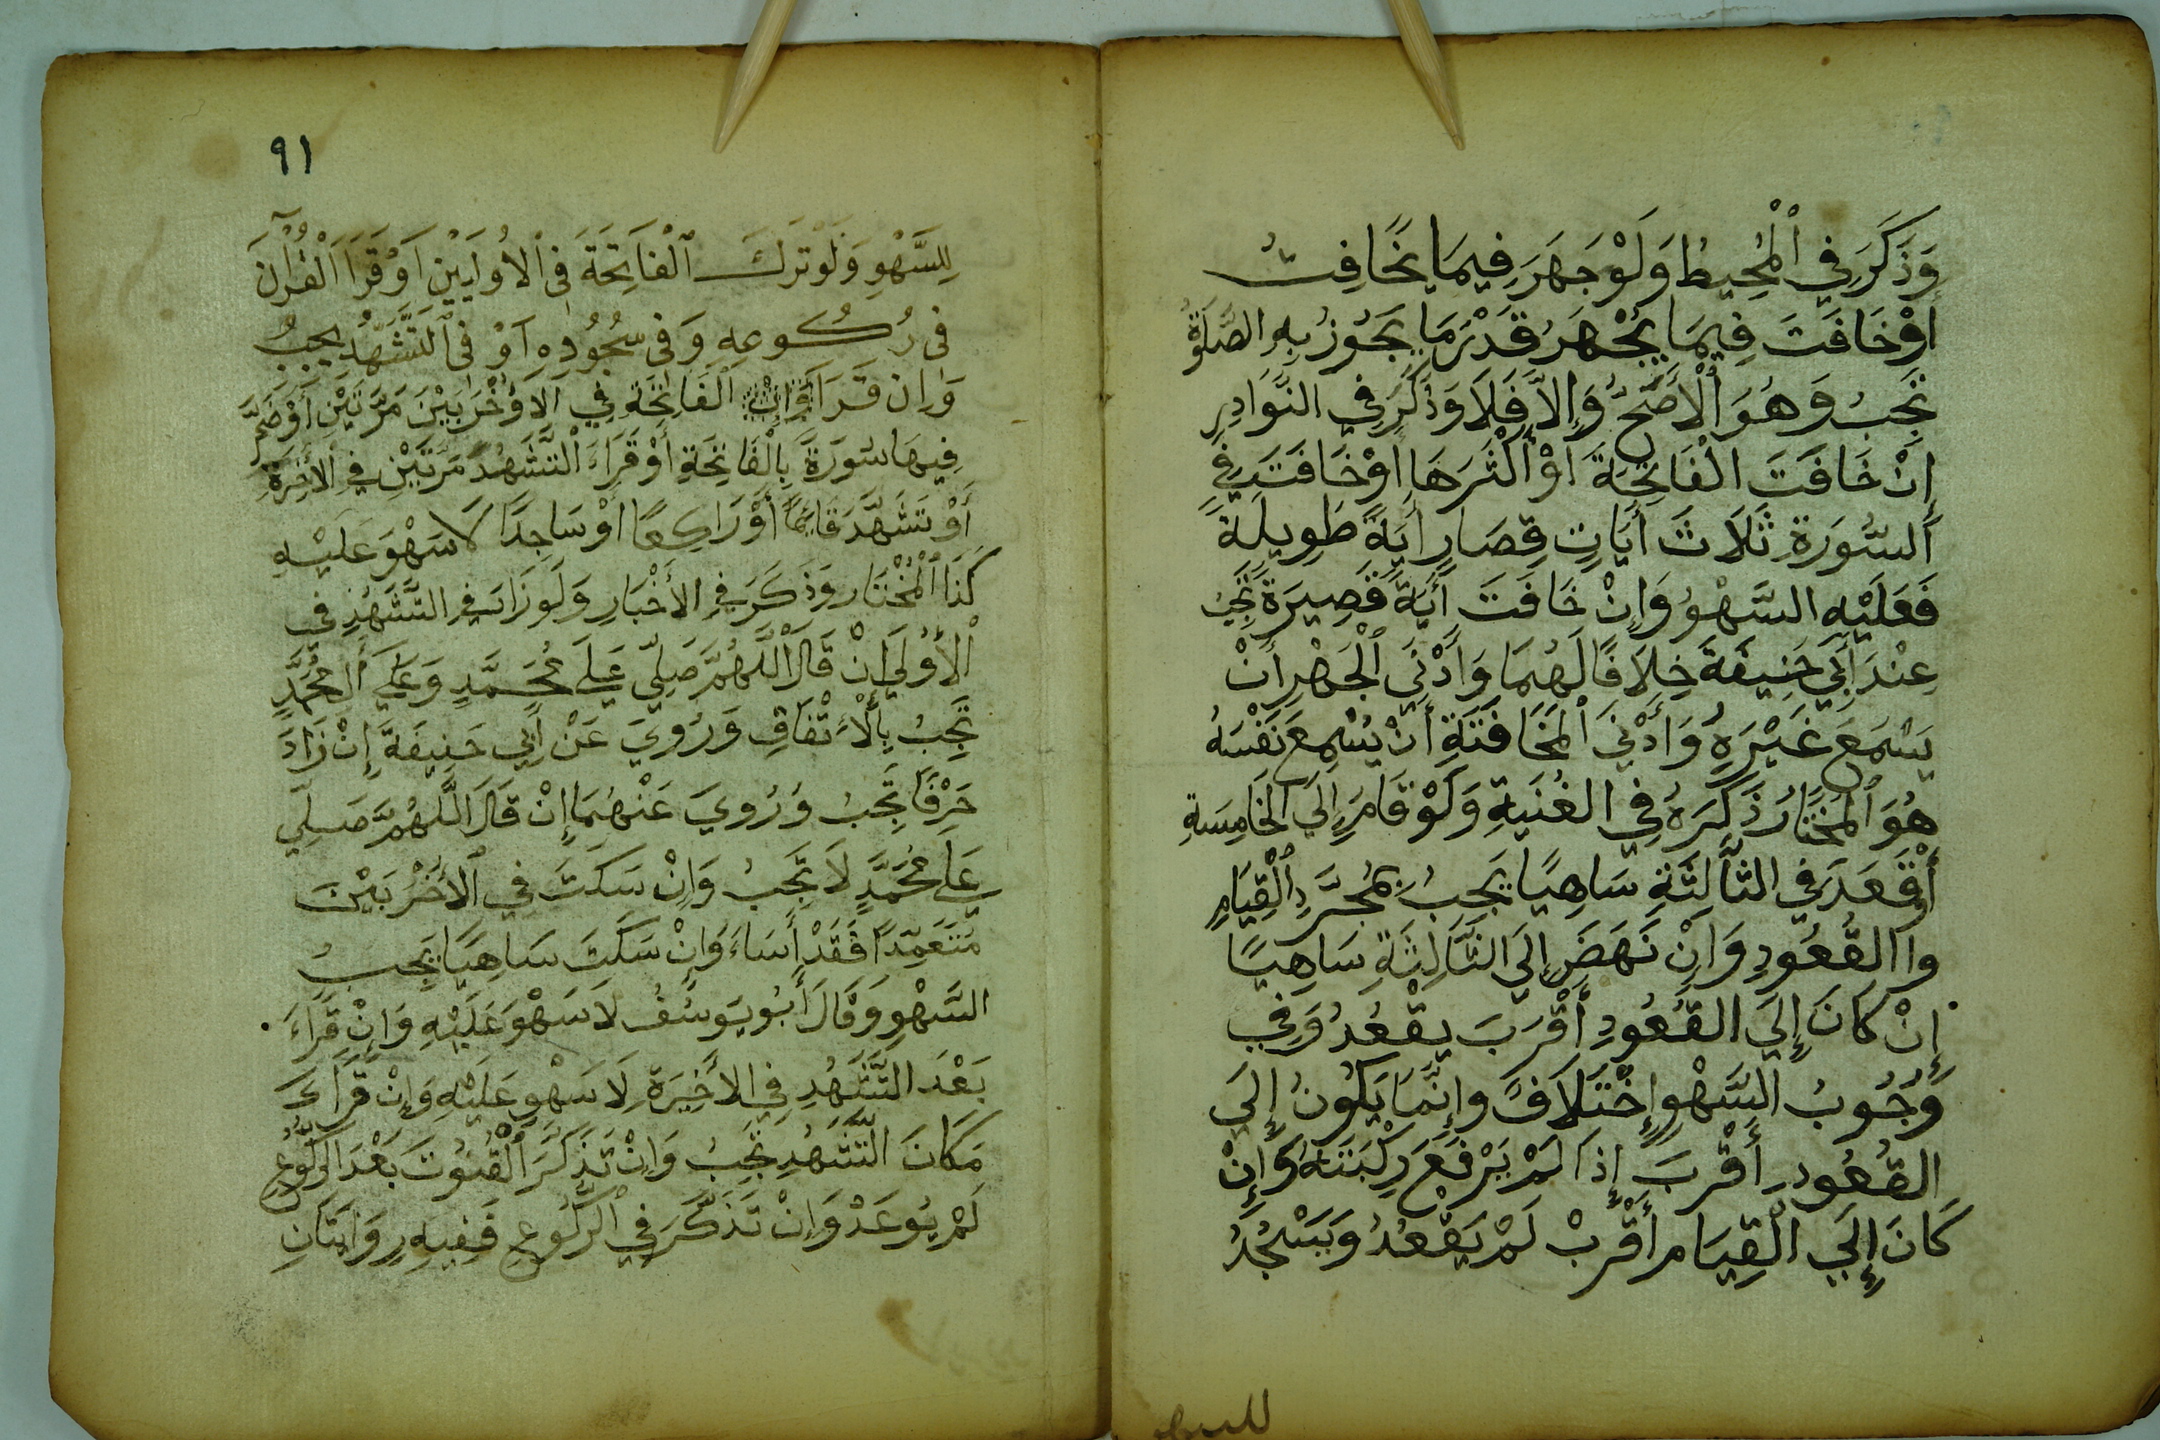 وَذَكَرَ فِي ٱلْمُحِيطُ وَلَوْ جَهَرَ فِيمَا يُخَافِتُ
أَوْ خَافَتَ فِيمَا يُجْهَرُ قَدْرَ مَا يَجُوزُ بِهِ الصَّلَوةُ
تَجِبُ وَهُوَ ٱلْأَصَحُّ وَإِلاَّ فَلَا وَذَكَرَ فِي النَّوَادِرِ
إِنْ خَافَتَ الْفَاتِحَةَ أَوْ أَكْثَرَهَا أَوْ خَافَتَ فِي
السُّورَةِ ثَلَاثَ أَيَاتٍ قِصَارٍ أَيَةً طَوِيلَةً
فَعَلَيْهِ السَّهْوُ وَإِنْ خَافَتَ أَيَةً قَصِيرَةً تَجِبُ
عِنْدَ أَبِي حَنِيفَةَ خِلَافًا لَهُمَا وَأَدْنَي ٱلْجَهْرِ أَنْ
يَسْمَعَ غَيْرَهُ وَأَدْنَي ٱلْمَخَافَتَةِ أَنْ يُسْمِعَ نَفْسَهُ
هُوَ ٱلْمُخْتَارُ ذَكَرَهُ فِي الغُنْيَةِ وَلَوْ قَامَ إِلَي الْخَامِسَةِ
أَوْقَعَدَ فِي الثَّالِثَةِ سَاهِيًا يَجِبُ بِمُجَرَّدِ ٱلْقِيَامِ
وا القُعُودِ وَإِنْ نَهَضَ إِلَي الثَّالِثَةِ سَاهِيًا
إِنْ كَانَ إِلَي القُعُودِ أَقْرَبَ يَقْعُدُ وَفِي
وُجُوبُ السَّهْوِ إِخْتَلَافٌ وإِنَّمَا يَكُونُ إِلَي
القُعُودِ أَقْرَبَ إِذَا لَمْ يَرْفَعْ رِكْبَتَاهُ وَإِنْ
كَانَ إِلَي الْقِيَامِ أَقْرَبْ لَمْ يَقْعُدْ وَيَسْجُدُ
للسهو
٩١
لِلسَّهْوِ وَلَوْ تَرَكَ ٱلْفَاتِحَةَ فِى الْاُولَيَيْنِ اَوْ قَرَاَ الْقُرْآنَ
فى رُكُوعِهِ وَفى سُجُودِهِ اَوْ فى التَّشَهُّدِ يجبُ
وَاِن قَرَاَ الْفَاتِحَةِ فِي الاوُخْرَيَيْنَ مَرَّتَيْنِ أَوْضَمَّ
فِيهَا سُورَةً بِالْفَاتِحَةِ أَوْ قَرَاءَ التَّشَهُدَ مَرَتَيْنِ فِي الْأَخِرَةِ
أَوْ تَشَهَّدَ قَائِمًا أَوْ رَاكِعًا أَوْ سَاجِدًا لَا سَهْوَ عَلَيْهِ
كَذَا ٱلْمُخْتَار وَذَكَرَ فِي الأَخْبَارِ وَلَو زَادَ فِي التَّشَهُدِ فِي
الْأُوْلَي إِنْ قَالَ اللَّهُمَّ صَلِّي عَلَي مُحَمَّدٍ وَعَلَي أَلِ مُحَمَّدٍ
تَجِبُ بِالْأِتْفَاقِ وَرُوِيَ عَنْ أَبِي حَنِيفَةَ إِنْ زَادَ
حَرْفًا تَجِبُ وَرُوِيَ عَنْهُمَا إِنْ قَالَ اللَّهُمَّ صَلِّي
عَلَي مُحَمَّدٍ لَا تَجِبُ وَإِنْ سَكَتَ فِي ٱلْأُخْرَيَيْنَ
مُتَعَمِّدًا فَقَدْ أَسَاءَ وَإِنْ سَكَتَ سَاهِيًا يَجِبُ
السَّهْوِ وَقَالَ أَبُو يَوسُفُ لَا سَهْوَ عَلَيْهِ وَإِنْ قَرَاءَ
بَعْدَ التَّشَهُدِ فِي الأَخِيرَةِ لَا سَهْوِ عَلَيْهِ وَإِنْ قَرَاءَ
مَكَانَ التَّشَهُدِ تَجِبُ وَإِنْ تَذَكَّرَ الْقُنُوتَ بَعْدَ الرُكُوعِ
لَمْ يَوعَدْ وَإِنْ تَذَكَّرَ فِي الرُّكُوعِ فَفِيهِ رِوَايَتَانِ